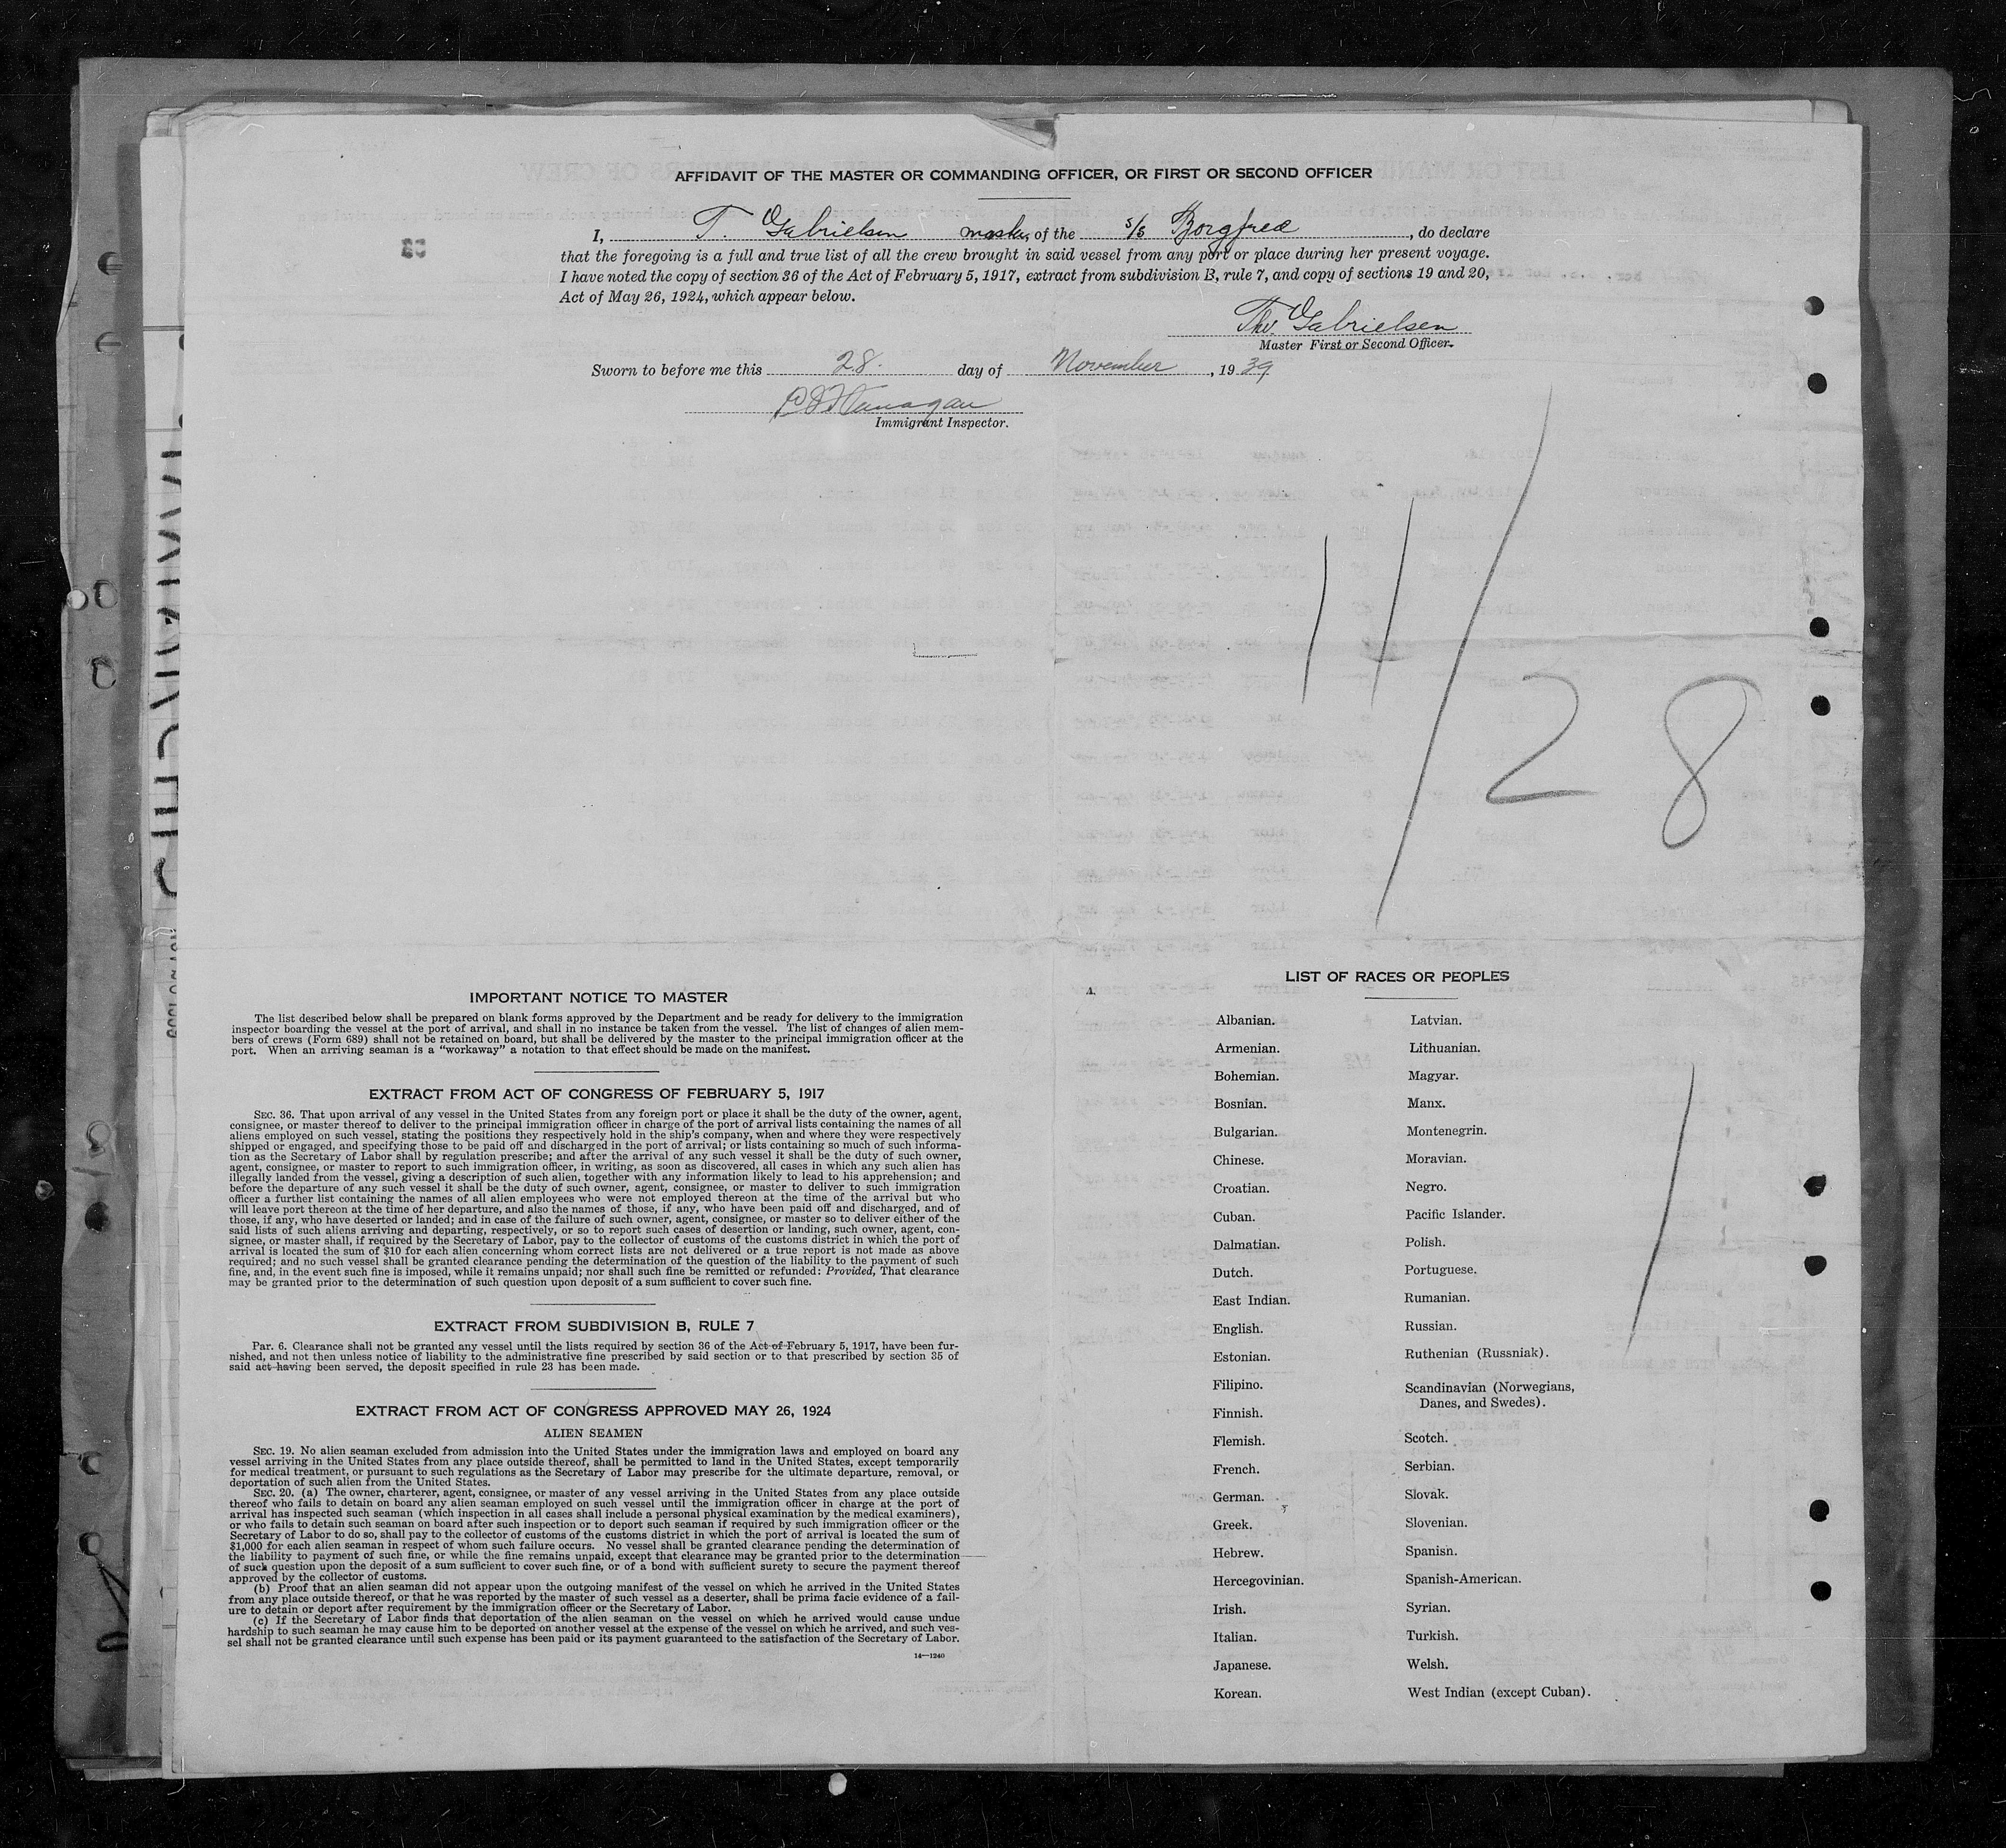 AFFIDAVIT OF THE MASTER OR COMMANDING OFFICER, OR FIRST OR SECOND OFFICER
I, T. Gabrielsen master of the s/s Borgfred, do declare
that the foregoing is a full and true list of all the crew brought in said vessel from any port or place during her present voyage.
I have noted the copy of section 36 of the Act of February 5, 1917, extract from subdivision B, rule 7, and copy of sections 19 and 20,
Act of May 26, 1924, which appear below.
Thv. Gabrielsen
Master First or Second Officer.
Sworn to before me this 28. day of November, 1939
Immigrant Inspector.
11/28
IMPORTANT NOTICE TO MASTER
The list described below shall be prepared on blank forms approved by the Department and be ready for delivery to the immigration
inspector boarding the vessel at the port of arrival, and shall in no instance be taken from the vessel. The list of changes of alien mem-
bers of crews (Form 689) shall not be retained on board, but shall be delivered by the master to the principal immigration officer at the
port. When an arriving seaman is a "workaway" a notation to that effect should be made on the manifest.
EXTRACT FROM ACT OF CONGRESS OF FEBRUARY 5, 1917
SEC. 36. That upon arrival of any vessel in the United States from any foreign port or place it shall be the duty of the owner, agent,
consignee, or master thereof to deliver to the principal immigration officer in charge of the port of arrival lists containing the names of all
aliens employed on such vessel, stating the positions they respectively hold in the ship's company, when and where they were respectively
shipped or engaged, and specifying those to be paid off and discharged in the port of arrival; or lists containing so much of such informa-
tion as the Secretary of Labor shall by regulation prescribe; and after the arrival of any such vessel it shall be the duty of such owner,
agent, consignee, or master to report to such immigration officer, in writing, as soon as discovered, all cases in which any such alien has
illegally landed from the vessel, giving a description of such alien, together with any information likely to lead to his apprehension; and
before the departure of any such vessel it shall be the duty of such owner, agent, consignee, or master to deliver to such immigration
officer a further list containing the names of all alien employees who were not employed thereon at the time of the arrival but who
will leave port thereon at the time of her departure, and also the names of those, if any, who have been paid off and discharged, and of
those, if any, who have deserted or landed; and in case of the failure of such owner, agent, consignee, or master so to deliver either of the
said lists of such aliens arriving and departing, respectively, or so to report such cases of desertion or landing, such owner, agent, con-
signee, or master shall, if required by the Secretary of Labor, pay to the collector of customs of the customs district in which the port of
arrival is located the sum of $10 for each alien concerning whom correct lists are not delivered or a true report is not made as above
required; and no such vessel shall be granted clearance pending the determination of the question of the liability to the payment of such
fine, and, in the event such fine is imposed, while it remains unpaid; nor shall such fine be remitted or refunded: Provided, That clearance
may be granted prior to the determination of such question upon deposit of a sum sufficient to cover such fine.
EXTRACT FROM SUBDIVISION B, RULE 7
Par. 6. Clearance shall not be granted any vessel until the lists required by section 36 of the Act of February 5, 1917, have been fur-
nished, and not then unless notice of liability to the administrative fine prescribed by said section or to that prescribed by section 35 of
said act having been served, the deposit specified in rule 23 has been made.
EXTRACT FROM ACT OF CONGRESS APPROVED MAY 26, 1924
ALIEN SEAMEN
SEC. 19. No alien seaman excluded from admission into the United States under the immigration laws and employed on board any
vessel arriving in the United States from any place outside thereof, shall be permitted to land in the United States, except temporarily
for medical treatment, or pursuant to such regulations as the Secretary of Labor may prescribe for the ultimate departure, removal, or
deportation of such alien from the United States.
SEC. 20. (a) The owner, charterer, agent, consignee, or master of any vessel arriving in the United States from any place outside
thereof who fails to detain on board any alien seaman employed on such vessel until the immigration officer in charge at the port of
arrival has inspected such seaman (which inspection in all cases shall include a personal physical examination by the medical examiners),
or who fails to detain such seaman on board after such inspection or to deport such seaman if required by such immigration officer or the
Secretary of Labor to do so, shall pay to the collector of customs of the customs district in which the port of arrival is located the sum of
$1,000 for each alien seaman in respect of whom such failure occurs. No vessel shall be granted clearance pending the determination of
the liability to payment of such fine, or while the fine remains unpaid, except that clearance may be granted prior to the determination
of such question upon the deposit of a sum sufficient to cover such fine, or of a bond with sufficient surety to secure the payment thereof
approved by the collector of customs.
(b) Proof that an alien seaman did not appear upon the outgoing manifest of the vessel on which he arrived in the United States
from any place outside thereof, or that he was reported by the master of such vessel as a deserter, shall be prima facie evidence of a fail-
ure to detain or deport after requirement by the immigration officer or the Secretary of Labor.
(c) If the Secretary of Labor finds that deportation of the alien seaman on the vessel on which he arrived would cause undue
hardship to such seaman he may cause him to be deported on another vessel at the expense of the vessel on which he arrived, and such ves-
sel shall not be granted clearance until such expense has been paid or its payment guaranteed to the satisfaction of the Secretary of Labor.
14—1240
LIST OF RACES OR PEOPLES
Albanian.
Armenian.
Bohemian.
Bosnian.
Bulgarian.
Chinese.
Croatian.
Cuban.
Dalmatian.
Dutch.
East Indian.
English.
Estonian.
Filipino.
Finnish.
Flemish.
French.
German.
Greek.
Hebrew.
Hercegovinian.
Irish.
Italian.
Japanese.
Korean.
Latvian.
Lithuanian.
Magyar.
Manx.
Montenegrin.
Moravian.
Negro.
Pacific Islander.
Polish.
Portuguese.
Rumanian.
Russian.
Ruthenian (Russniak).
Scandinavian (Norwegians,
Danes, and Swedes).
Scotch.
Serbian.
Slovak.
Slovenian.
Spanisn.
Spanish-American.
Syrian.
Turkish.
Welsh.
West Indian (except Cuban).